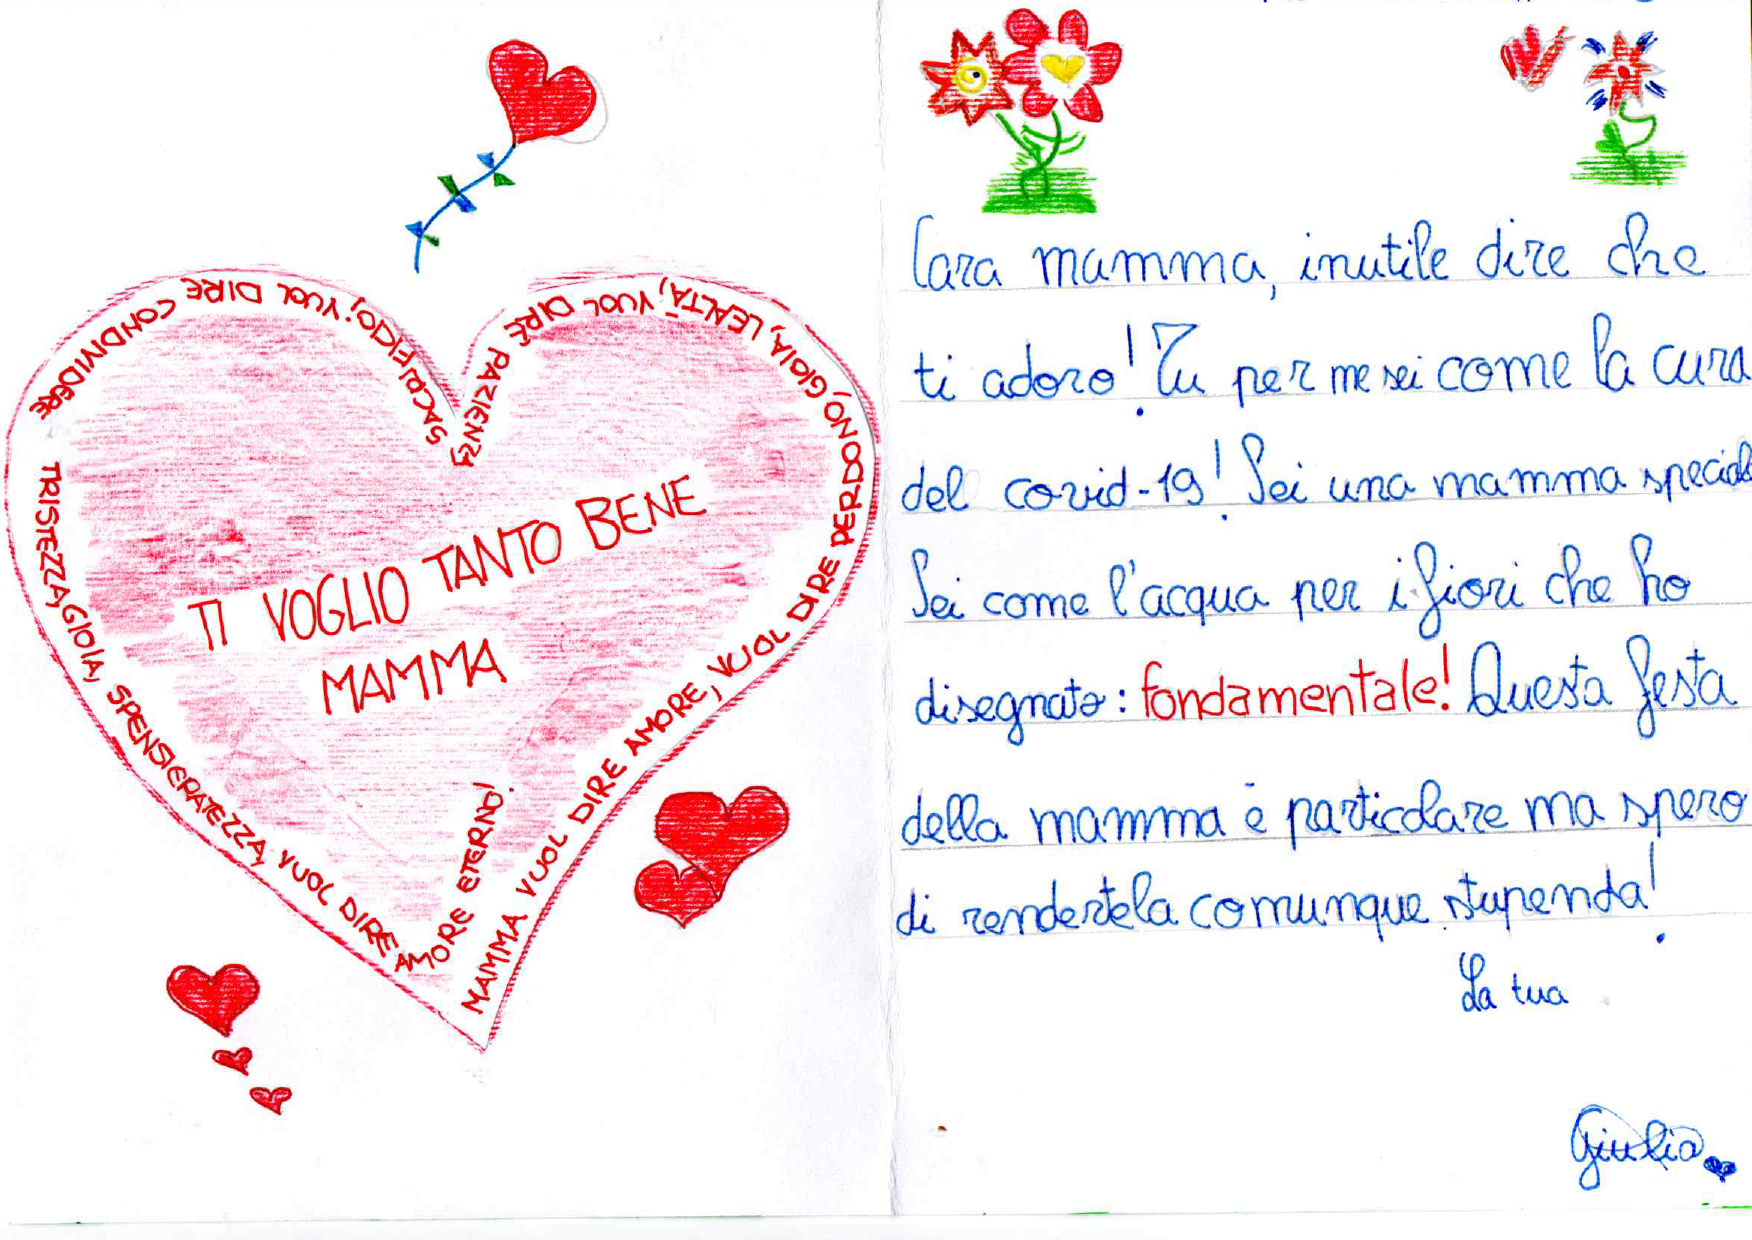 TI VOGLIO TANTO BENE
MAMMA
MAMMA VUOL DIRE AMORE, VUOL DIRE PERDONO, GIOIA, LEALTÀ, VUOL DIRE PAZIENZA, SACRIFICIO, VUOL DIRE CONDIVIDERE TRISTEZZA, GIOIA, SPENSIERATEZZA, VUOL DIRE AMORE ETERNO!
Cara mamma, inutile dire che
ti adoro! Tu per me sei come la cura
del covid-19! Sei una mamma speciale
Sei come l'acqua per i fiori che ho
disegnato: fondamentale! Questa festa
della mamma è particolare ma spero
di rendertela comunque stupenda!
La tua
Giulia